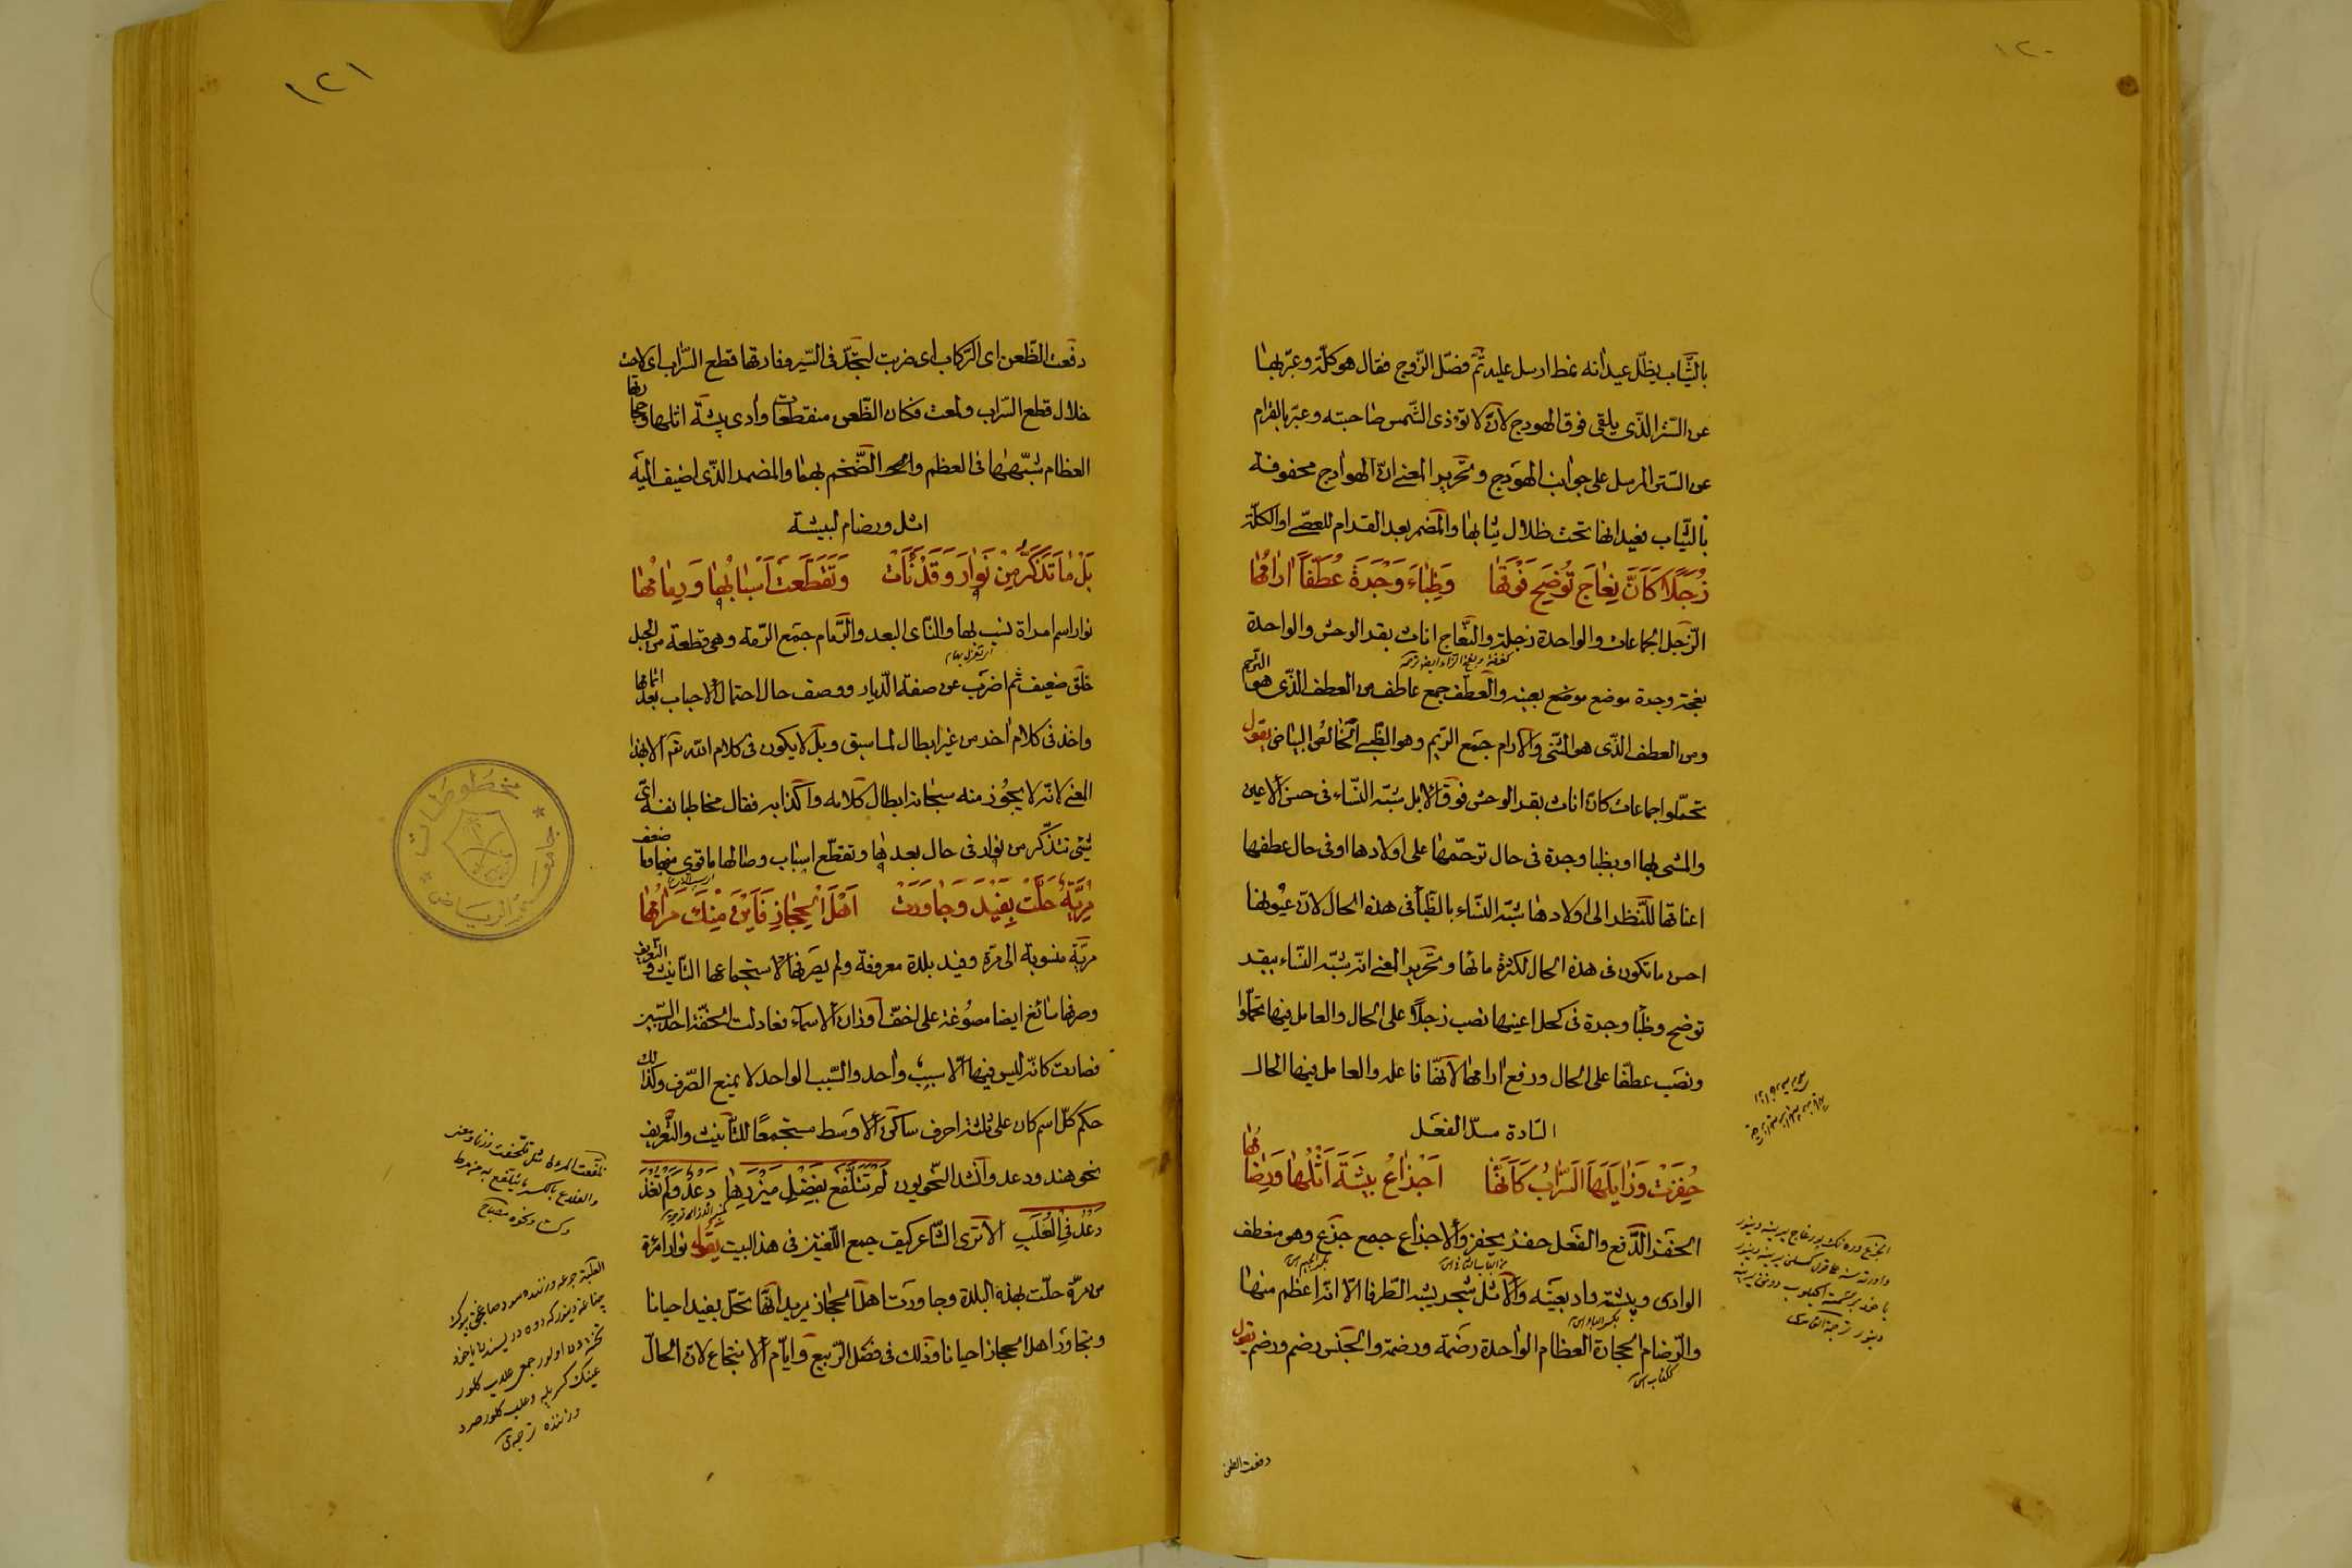 ١٢٠
بالثياب يظل عيدانه نمط ارسل عليه ثم فصّل الزّوج فقال هو كلّة وعبّر بها
عن السّتر الذّى يلقى فوق الهودج لانّ لا تؤذى الشّمس صاحبته وعبّر بالقرام
عن السّتر المرسل على جوانب الهودج وتحرير المعنى انّ الهوادج محفوفة
بالثّياب فعيدانها تحت ظلال ثيابها والمضمر بعد القرام للعصىّ او الكلّة
زُجَلًا كَاَنَّ نِعَاجَ تُوضِحَ فَوْقَهَا وَظِبَاءَ وَجْرَةَ عُطَّفًا ارَامُهَا
الزّجل الجماعات والواحدة زجلة والنّعاج اناث بقر الوحش والواحدة
نعجة وجرة موضع موضع بعينه والعطّف جمع عاطف من العطف الذّى هو الترحّم
ومن العطف الذّى هو الثنى والارام جمع الريم وهو الظّبى الخالص البياض يقول
تحمّلوا جماعات كانّ اناث بقر الوحش فوق الابل شبّه النّساء فى حسن الاعين
والمشى بها او بظبا وجرة فى حال ترحّمها على اولادها او فى حال عطفها
اعناقها للنّظر الى اولادها شبّه النّساء بالظّبأ فى هذه الحال لانّ عيونها
احسن ما تكون فى هذه الحال لكثرة مائها وتحرير المعنى انّه شبّه النّساء ببقر
توضح وظبأ وجرة فى كحل اعينها نصب زجلًا على الحال والعامل فيها تحمّلوا
ونصب عطّفا على الحال ورفع ارامها لانّها فاعله والعامل فيها الحال
السّادة مسدّ الفعل
حُفِزَتْ وَزَايَلَهَا السَّرَابُ كَاَنَّهَا اَجْزَاعُ بِيشَةَ اَثْلُهَا وَرِضَامُهَا
الحفز الدّفع والفعل حفز يحفز والاجزاع جمع جزع وهو منعطف
الوادى وبيشة واد بعينه والاثل شجر يشبه الطّرفا الّا انّه اعظم منها
والرّضام الحجارة العظام الواحدة رضمة ورضمة والجنس رضم ورضم يقول
دفعت الظعن
١٢١
دفعت الظّعن اى الرّكاب اى ضربت لتجدّ فى السّير وفارقها قطع السّراب اى لاحت
خلال قطع السّراب ولمعت فكان الظّعن منعطفات وادى بيشة اثلها وحجارتها
العظام شبّهها فى العظم والضّخم بهما والمضمر الذّى اضيف اليه
اثل ورضام لبيشة
بَلْ مَا تَذَكَّرُ مِنْ نَوَارَ وَقَدْ نَأَتْ وَتَقَطَّعَتْ اَسْبَابُهَا وَرِمَامُهَا
نوار اسم امراة نسب بها والنّاى البعد والرّمام جمع الرّمة وهى قطعة من الحبل
خلق ضعيف ثم اضرب عن صفة الدّيار ووصف حال احتمال الاحباب بعد اتمامها
واخذ فى كلام اخر من غير ابطال لما سبق وبل لا يكون فى كلام الله تع الّا بهذا
المعنى لانّه لا يجوز منه سبحانه ابطال كلامه واكذابه فقال مخاطبا نفسه اىّ
شئ تتذكّر من نوار فى حال بعدها وتقطّع اسباب وصالها ما قوى منها وما ضعف
مُرِّيَّةٌ حَلَّتْ بِفَيْدَ وَجَاوَرَتْ اَهْلَ الْحِجَازِ فَاَيْنَ مِنْكَ مَرَامُهَا
مريّة منسوبة الى مرّة وفيد بلدة معروفة ولم يصرفها لاستجماعها التّانيث والتّعريف
وصرفها سائغ ايضا مصوغة على اخفّ اوزان الاسماء فعادلت الخفّة احد السّببين
فصارت كانّه ليس فيها الّا سبب واحد والسّبب الواحد لا يمنع الصّرف وكذلك
حكم كلّ اسم كان على ثلثة احرف ساكن الاوسط مستجمعًا للتّانيث والتّعريف
نحو هند ودعد وانشد النّحويون لَمْ تَتَلَفَّعْ بِفَضْلِ مِئْزَرِهَا دَعْدٌ وَلَمْ تُغْذَ
دَعْدُ فِى الْعُلَبِ الا ترى الشّاعر كيف جمع اللّغتين فى هذا البيت يقول نوار امرأة
من مرّة حلّت بهذه البلدة وجاورت اهل الحجاز يريد انّها تحلّ بفيد احيانا
وتجاور اهل الحجاز احيانا وذلك فى فصل الرّبيع وايّام الانتجاع لانّ الحالّ
مخطوطات
جامعة الرياض